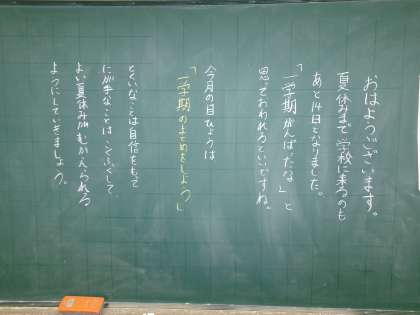 おはようございます。
夏休みまで学校に来るのも
あと14日となりました。
「一学期がんばったな」と
思っておわれるといいですね。
今月の目ひょうは
「一学期のまとめをしよう」
とくいなことは自信をもって
にが手なことはこくふくして
よい夏休みがむかえられる
ようにしていきましょう。